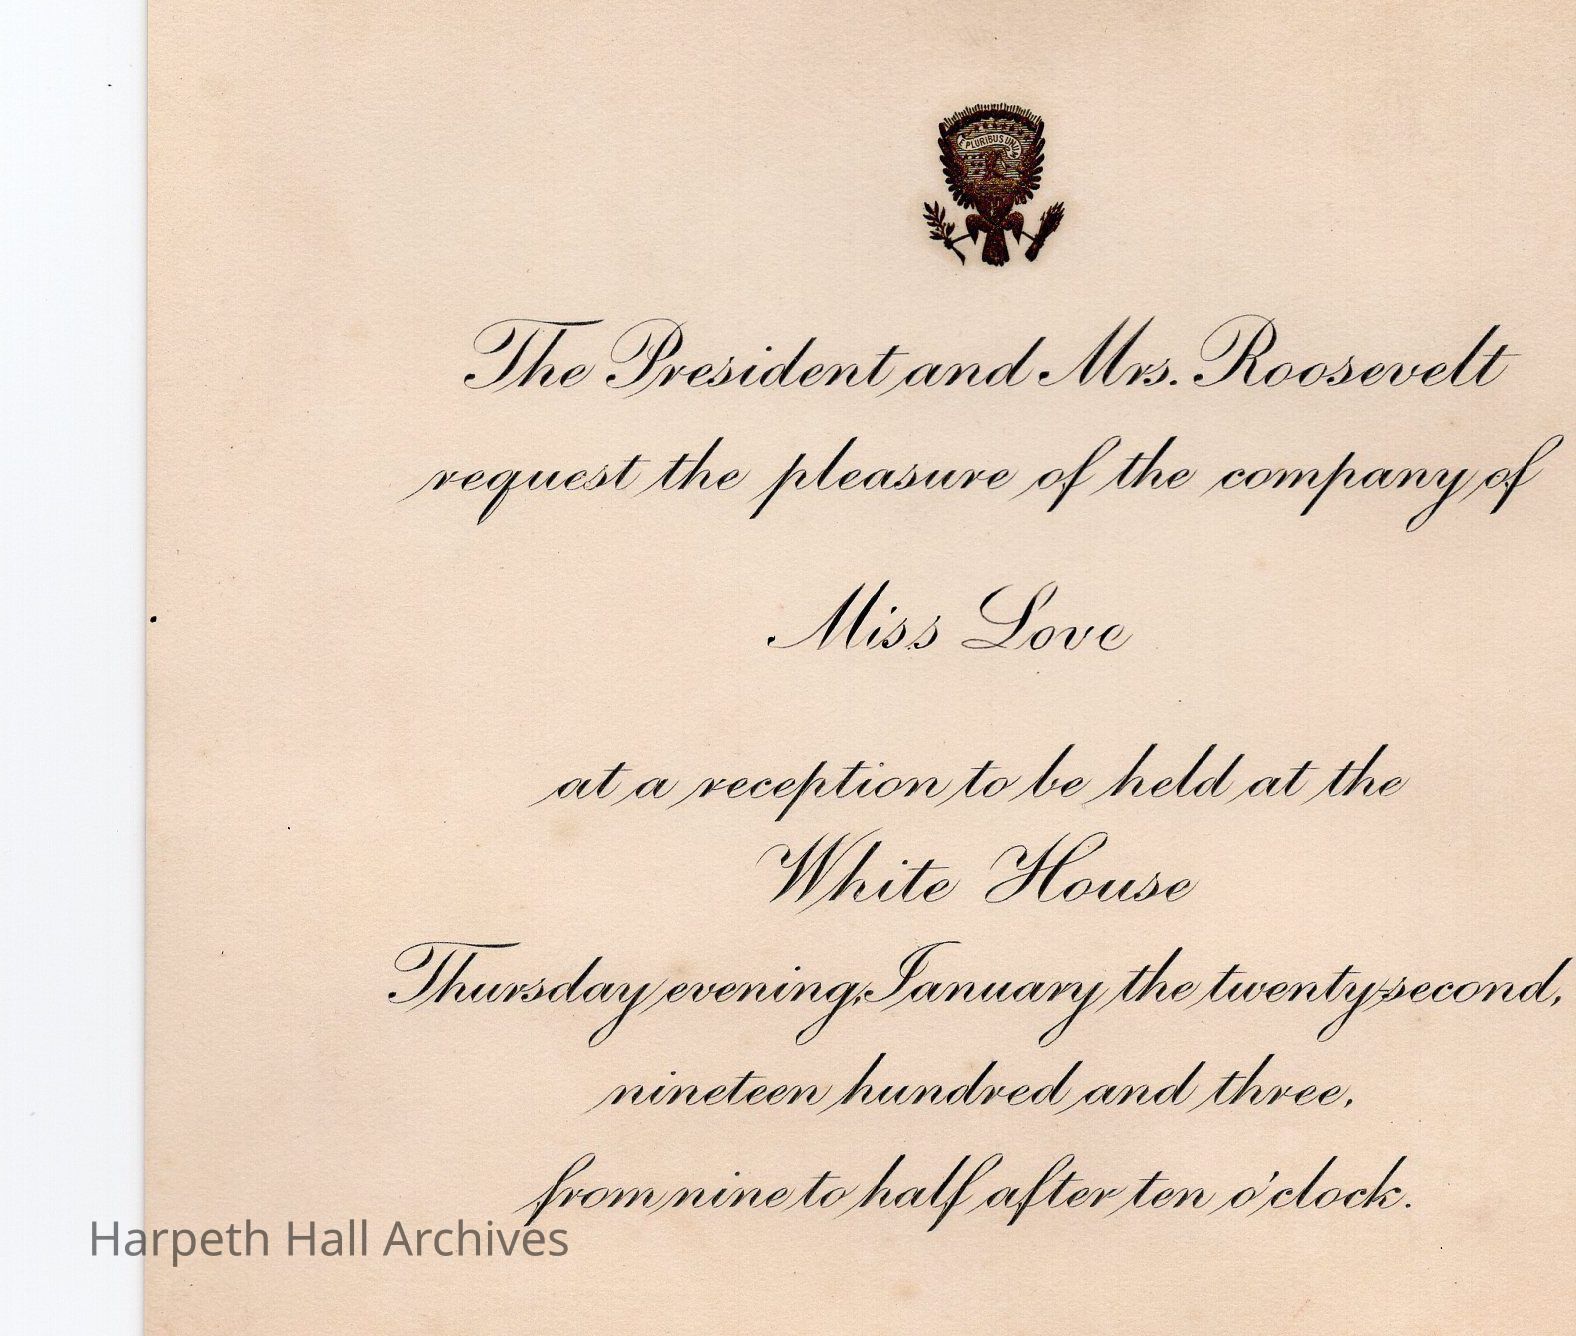 E PLURIBUS UNUM
The President and Mrs. Roosevelt
request the pleasure of the company of
Miss Love
at a reception to be held at the
White House
Thursday evening, January the twenty-second,
nineteen hundred and three,
from nine to half after ten o'clock.
Harpeth Hall Archives